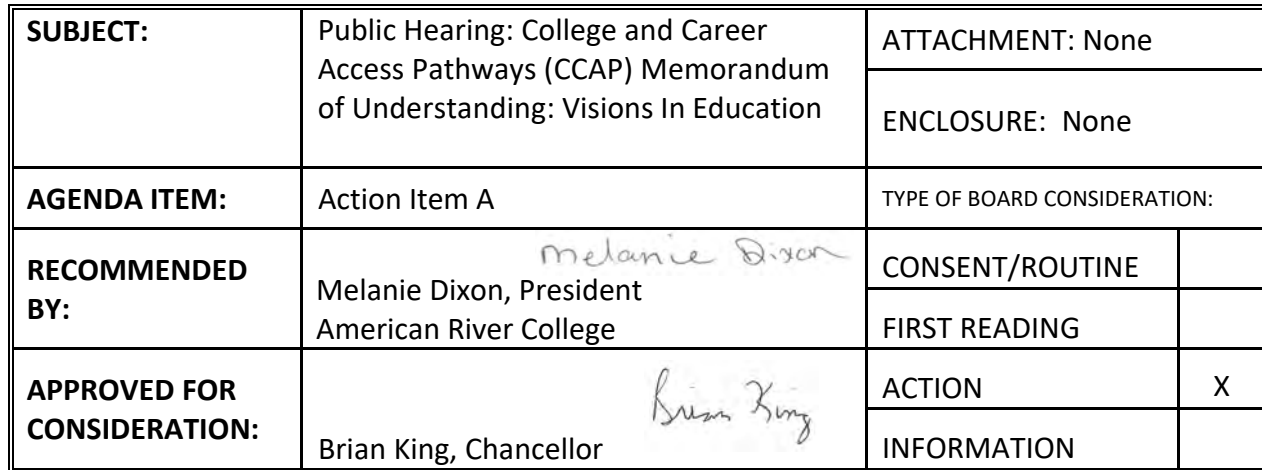 SUBJECT:
Public Hearing: College and Career
Access Pathways (CCAP) Memorandum
of Understanding: Visions In Education
ATTACHMENT: None
ENCLOSURE: None
AGENDA ITEM:
Action Item A
TYPE OF BOARD CONSIDERATION:
RECOMMENDED
BY:
Melanie Dixon
Melanie Dixon, President
American River College
CONSENT/ROUTINE
FIRST READING
APPROVED FOR
CONSIDERATION:
Brian King
Brian King, Chancellor
ACTION X
INFORMATION